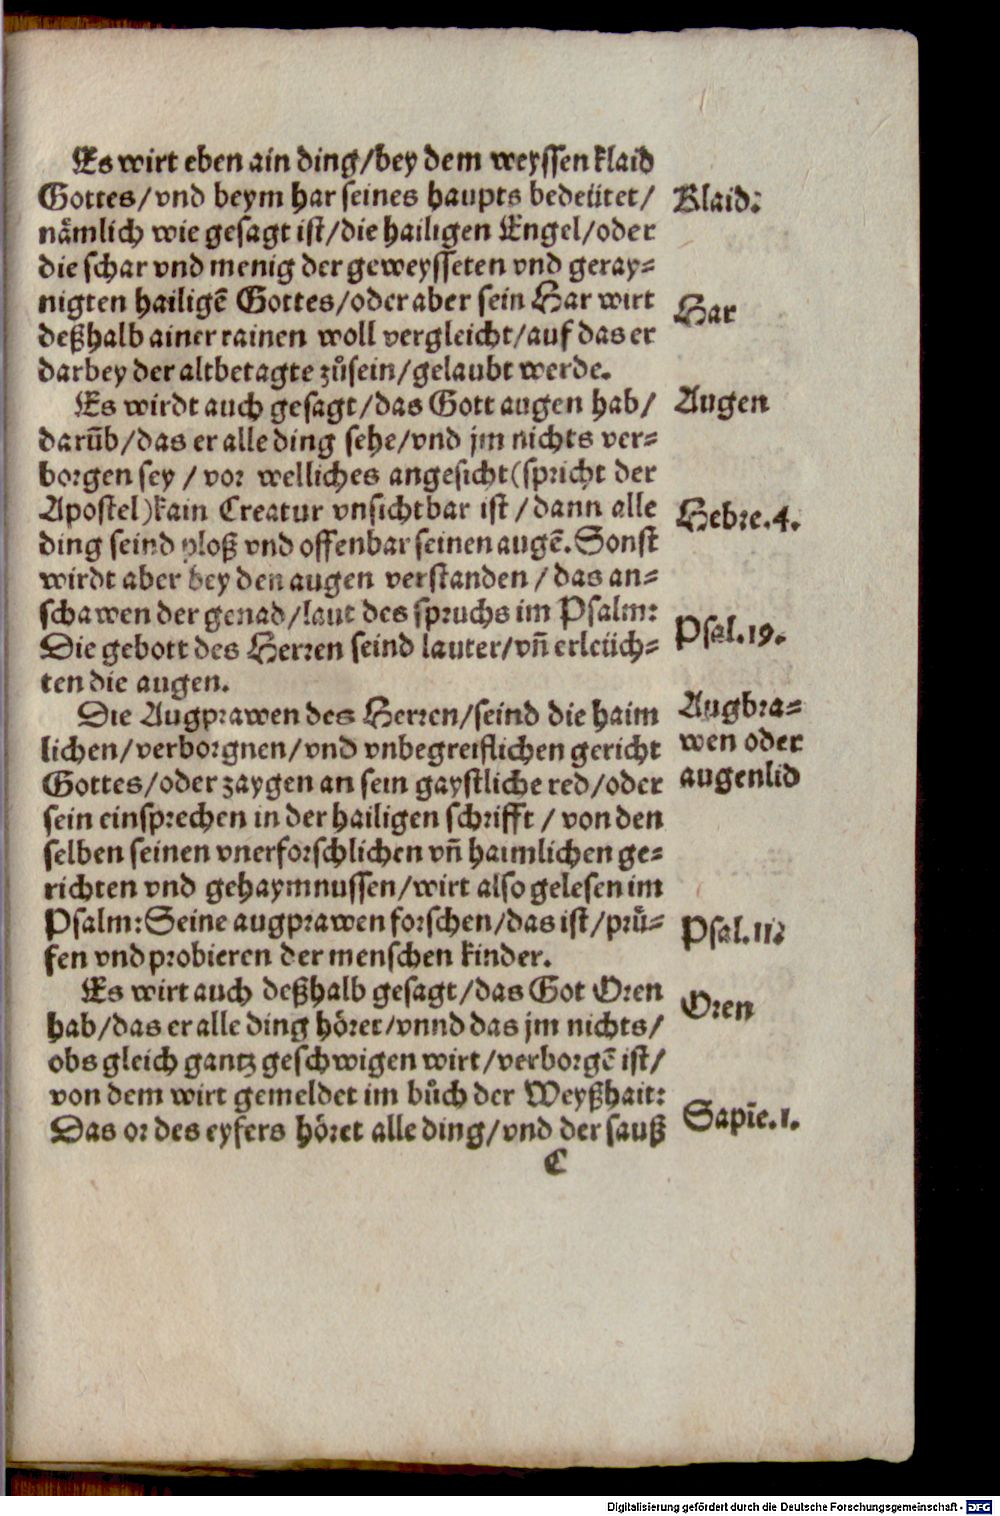 Es wirt eben ain ding/bey dem weyssen klaid
Gottes/vnd beym har seines haupts bedeütet/
Klaid:
nämlich wie gesagt ist/die hailigen Engel/oder
die schar vnd menig der geweysseten vnd geray-
nigten hailigē Gottes/oder aber sein Har wirt
Har
deßhalb ainer rainen woll vergleicht/auf das er
darbey der altbetagte zůsein/gelaubt werde.
Es wirdt auch gesagt/das Gott augen hab/
Augen
darūb/das er alle ding sehe/vnd jm nichts ver-
borgen sey / vor welliches angesicht(spricht der
Apostel)kain Creatur vnsichtbar ist / dann alle
Hebre.4.
ding seind ploß vnd offenbar seinen augē. Sonst
wirdt aber bey den augen verstanden / das an-
schawen der genad/laut des spruchs im Psalm:
Psal.19.
Die gebott des Herren seind lauter/vñ erleüch-
ten die augen.
Die Augprawen des Herren/seind die haim
Augbra-
wen oder
augenlid
lichen/verborgnen/vnd vnbegreiflichen gericht
Gottes/oder zaygen an sein gaystliche red/oder
sein einsprechen in der hailigen schrifft / von den
selben seinen vnerforschlichen vñ haimlichen ge-
richten vnd gehaymnussen/wirt also gelesen im
Psalm: Seine augprawen forschen/das ist/prů-
Psal.11.
fen vnd probieren der menschen kinder.
Es wirt auch deßhalb gesagt/das Got Oren
Oren
hab/das er alle ding höret/vnnd das jm nichts/
obs gleich gantz geschwigen wirt/verborgē ist/
von dem wirt gemeldet im bůch der Weyßhait:
Sapiē.1.
Das or des eyfers höret alle ding/vnd der sauß
C
Digitalisierung gefördert durch die Deutsche Forschungsgemeinschaft - DFG